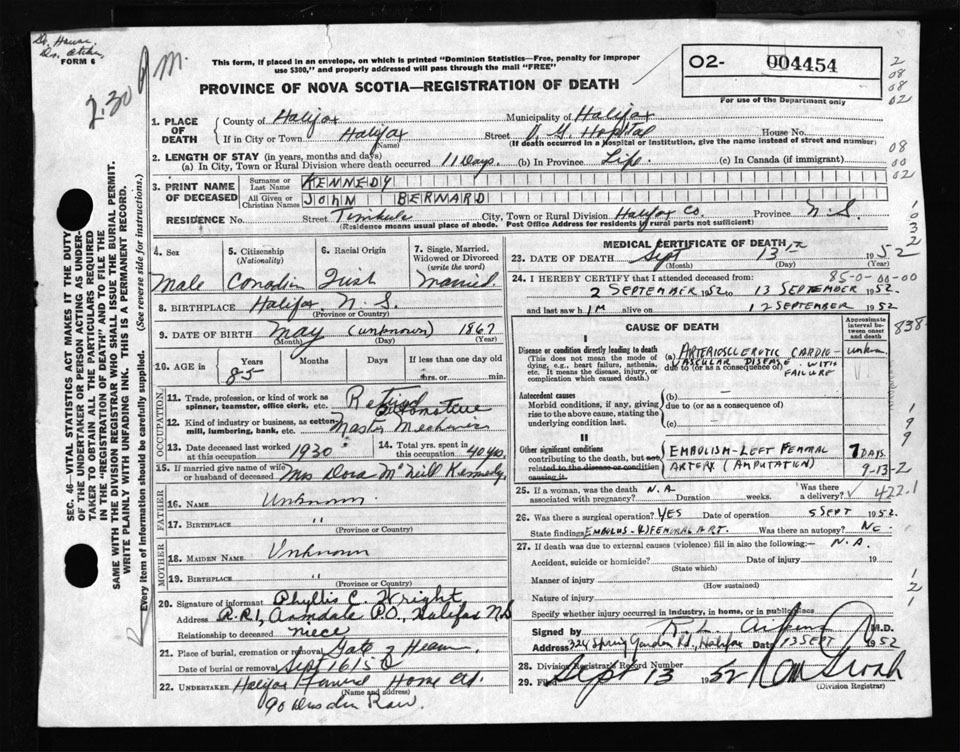 Dr.
Dr.
FORM 6
2.30 P M.
This form, if placed in an envelope, on which is printed "Dominion Statistics—Free, penalty for improper
use $300," and properly addressed will pass through the mail "FREE"
PROVINCE OF NOVA SCOTIA—REGISTRATION OF DEATH
02- 004454
For use of the Department only
2
08
08
02
1. PLACE OF DEATH
County of Halifax Municipality of Halifax
If in City or Town Halifax Street V. G. Hospital House No.
(Name) (If death occurred in a Hospital or Institution, give the name instead of street and number)
2. LENGTH OF STAY (in years, months and days)
(a) In City, Town or Rural Division where death occurred 11 Days. (b) In Province Life. (c) In Canada (if immigrant)
08
00
02
3. PRINT NAME OF DECEASED
Surname or Last Name KENNEDY
All Given or Christian Names JOHN BERNARD
RESIDENCE No. Street City, Town or Rural Division Halifax Co. Province N.S.
(Residence means usual place of abode. Post Office Address for residents of rural parts not sufficient)
1
0
3
2
SEC. 46—VITAL STATISTICS ACT MAKES IT THE DUTY
OF THE UNDERTAKER OR PERSON ACTING AS UNDER-
TAKER TO OBTAIN ALL THE PARTICULARS REQUIRED
IN THE "REGISTRATION OF DEATH" AND TO FILE THE
SAME WITH THE DIVISION REGISTRAR WHO SHALL ISSUE THE BURIAL PERMIT.
WRITE PLAINLY WITH UNFADING INK. THIS IS A PERMANENT RECORD.
Every item of Information should be carefully supplied. (See reverse side for instructions.)
4. Sex
Male
5. Citizenship
(Nationality)
Canadian
6. Racial Origin
Irish
7. Single, Married,
Widowed or Divorced
(write the word)
Married.
8. BIRTHPLACE Halifax N.S.
(Province or Country)
9. DATE OF BIRTH May (unknown) 1867
(Month) (Day) (Year)
10. AGE in
Years Months Days If less than one day old
85 hrs. or min.
OCCUPATION
11. Trade, profession, or kind of work as
spinner, teamster, office clerk, etc. Retired
12. Kind of industry or business, as cotton-
mill, lumbering, bank, etc. Master Mechanics
13. Date deceased last worked
at this occupation 1930
14. Total yrs. spent in
this occupation 40 yrs.
15. If married give name of wife
or husband of deceased Mrs Dora McNeill Kennedy
FATHER
16. Name Unknown
17. Birthplace "
(Province or Country)
MOTHER
18. Maiden Name Unknown
19. Birthplace "
(Province or Country)
20. Signature of informant Phyllis C. Wright
Address R.R.1, Armdale P.O., Halifax N.S
Relationship to deceased niece
21. Place of burial, cremation or removal Gate of Heaven
Date of burial or removal Sept 16/52
22. UNDERTAKER Halifax Funeral Home Ltd.
(Name and address)
90 Dresden Row.
MEDICAL CERTIFICATE OF DEATH
23. DATE OF DEATH Sept 13th 1952
(Month) (Day) (Year)
24. I HEREBY CERTIFY that I attended deceased from: 85-0-00-00
2 SEPTEMBER 1952 to 13 SEPTEMBER 1952.
and last saw h IM alive on 12 SEPTEMBER 1952
CAUSE OF DEATH
Approximate
interval be-
tween onset
and death
838-
I
Disease or condition directly leading to death
(This does not mean the mode of
dying, e.g., heart failure, asthenia,
etc. It means the disease, injury, or
complication which caused death.)
(a) ARTERIOSCLEROTIC CARDIO-
VASCULAR DISEASE WITH
due to (or as a consequence of) FAILURE
Antecedent causes
Morbid conditions, if any, giving
rise to the above cause, stating the
underlying condition last.
(b) —
due to (or as a consequence of)
(c)
1
9
9
II
Other significant conditions
contributing to the death, but not
related to the disease or condition
causing it.
EMBOLISM-LEFT FEMORAL
ARTERY (AMPUTATION)
7 DAYS.
9-13-2
25. If a woman, was the death N.A. Was there
associated with pregnancy? Duration weeks. a delivery?
422.1
26. Was there a surgical operation? YES Date of operation 5 SEPT 1952.
State findings EMBOLUS-(L) FEMORAL ART. Was there an autopsy? No
27. If death was due to external causes (violence) fill in also the following:— N.A.
Accident, suicide or homicide? Date of injury 19
(State which)
Manner of injury
(How sustained)
Nature of injury
Specify whether injury occurred in industry, in home, or in public place
1
2
1
Signed by M.D.
Address 324 Spring Garden Rd., Halifax Date 13 SEPT 1952
28. Division Registrar's Record Number
29. Filed Sept 13 1952
(Division Registrar)